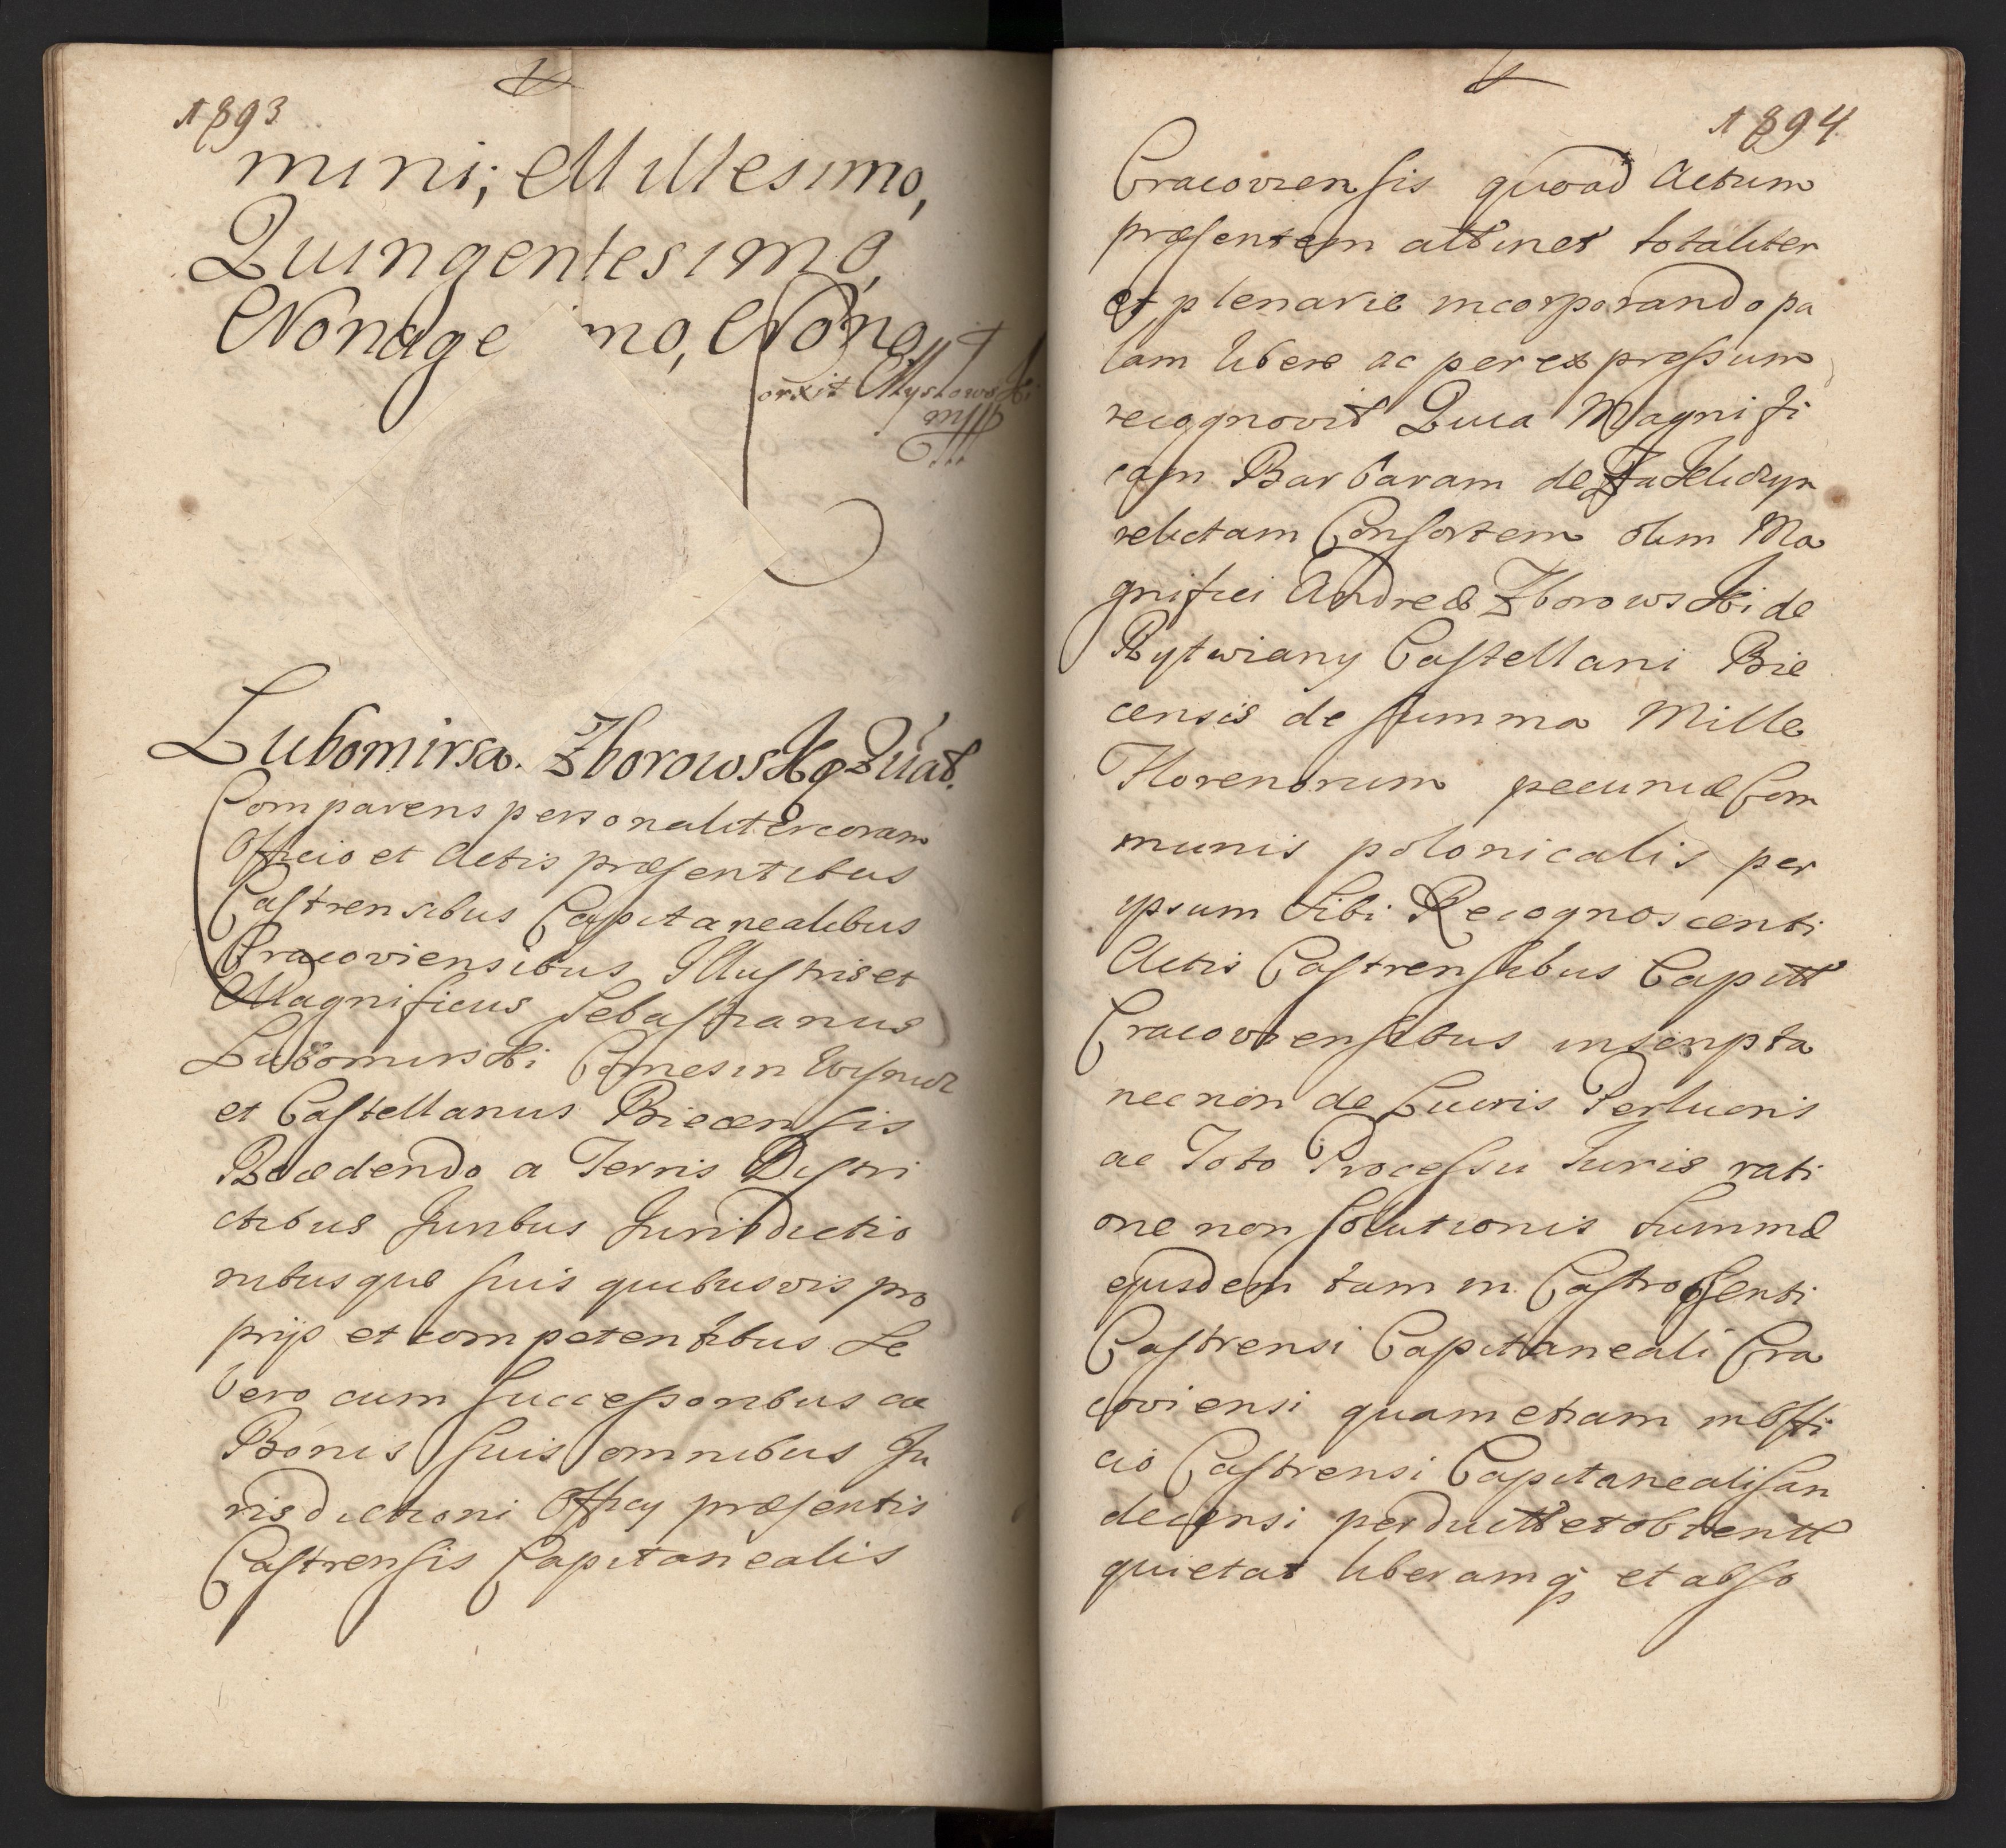 1893
mini, Millesimo,
Quingentesimo,
Nonage mo, Nono
orxit Myszkowski
mpp
Lubomirsa. Zborowską Quat.
Comparens personaliter coram
Officio et Actis præsentibus
Castrensibus Capitanealibus
Cracoviensibus Illustris et
Magnificus Sebastianus
Lubomirski Comes in Wisnicz
et Castellanus Biecensis
Recedendo a Terris Distri
ctibus Juribus Jurisdictio
nibusque suis quibusvis pro
prijs et competentibus Se
vero cum successoribus ac
Bonis suis omnibus Ju
risdictioni Officy præsentis
Castrensis Capitanealis
1894
Cracoviensis quoad Actum
præsentem attinet totaliter
et plenarie incorporando pa
lam libere ac per expressum
recognovit Quia Magnifi
cam Barbaram de
relictam Consortem olim Ma
gnifici Andreæ Zborowski de
Rytwiany Castellani Bie
censis de summa Mille
Florenorum pecuniæ com
munis polonicalis per
ipsum sibi Recognoscenti
Actis Castrensibus Capitt
Cracoviensibus inscripta
necnon de Lucris Perlucris
ac Toto Processu Juris rati
one non solutionis summæ
ejusdem tam in Castro
Castrensi Capitaneali Cra
coviensi quam etiam in Offi
cio Castrensi Capitaneali San
decensi perductt et obtentt
quietat liberamq; et abso